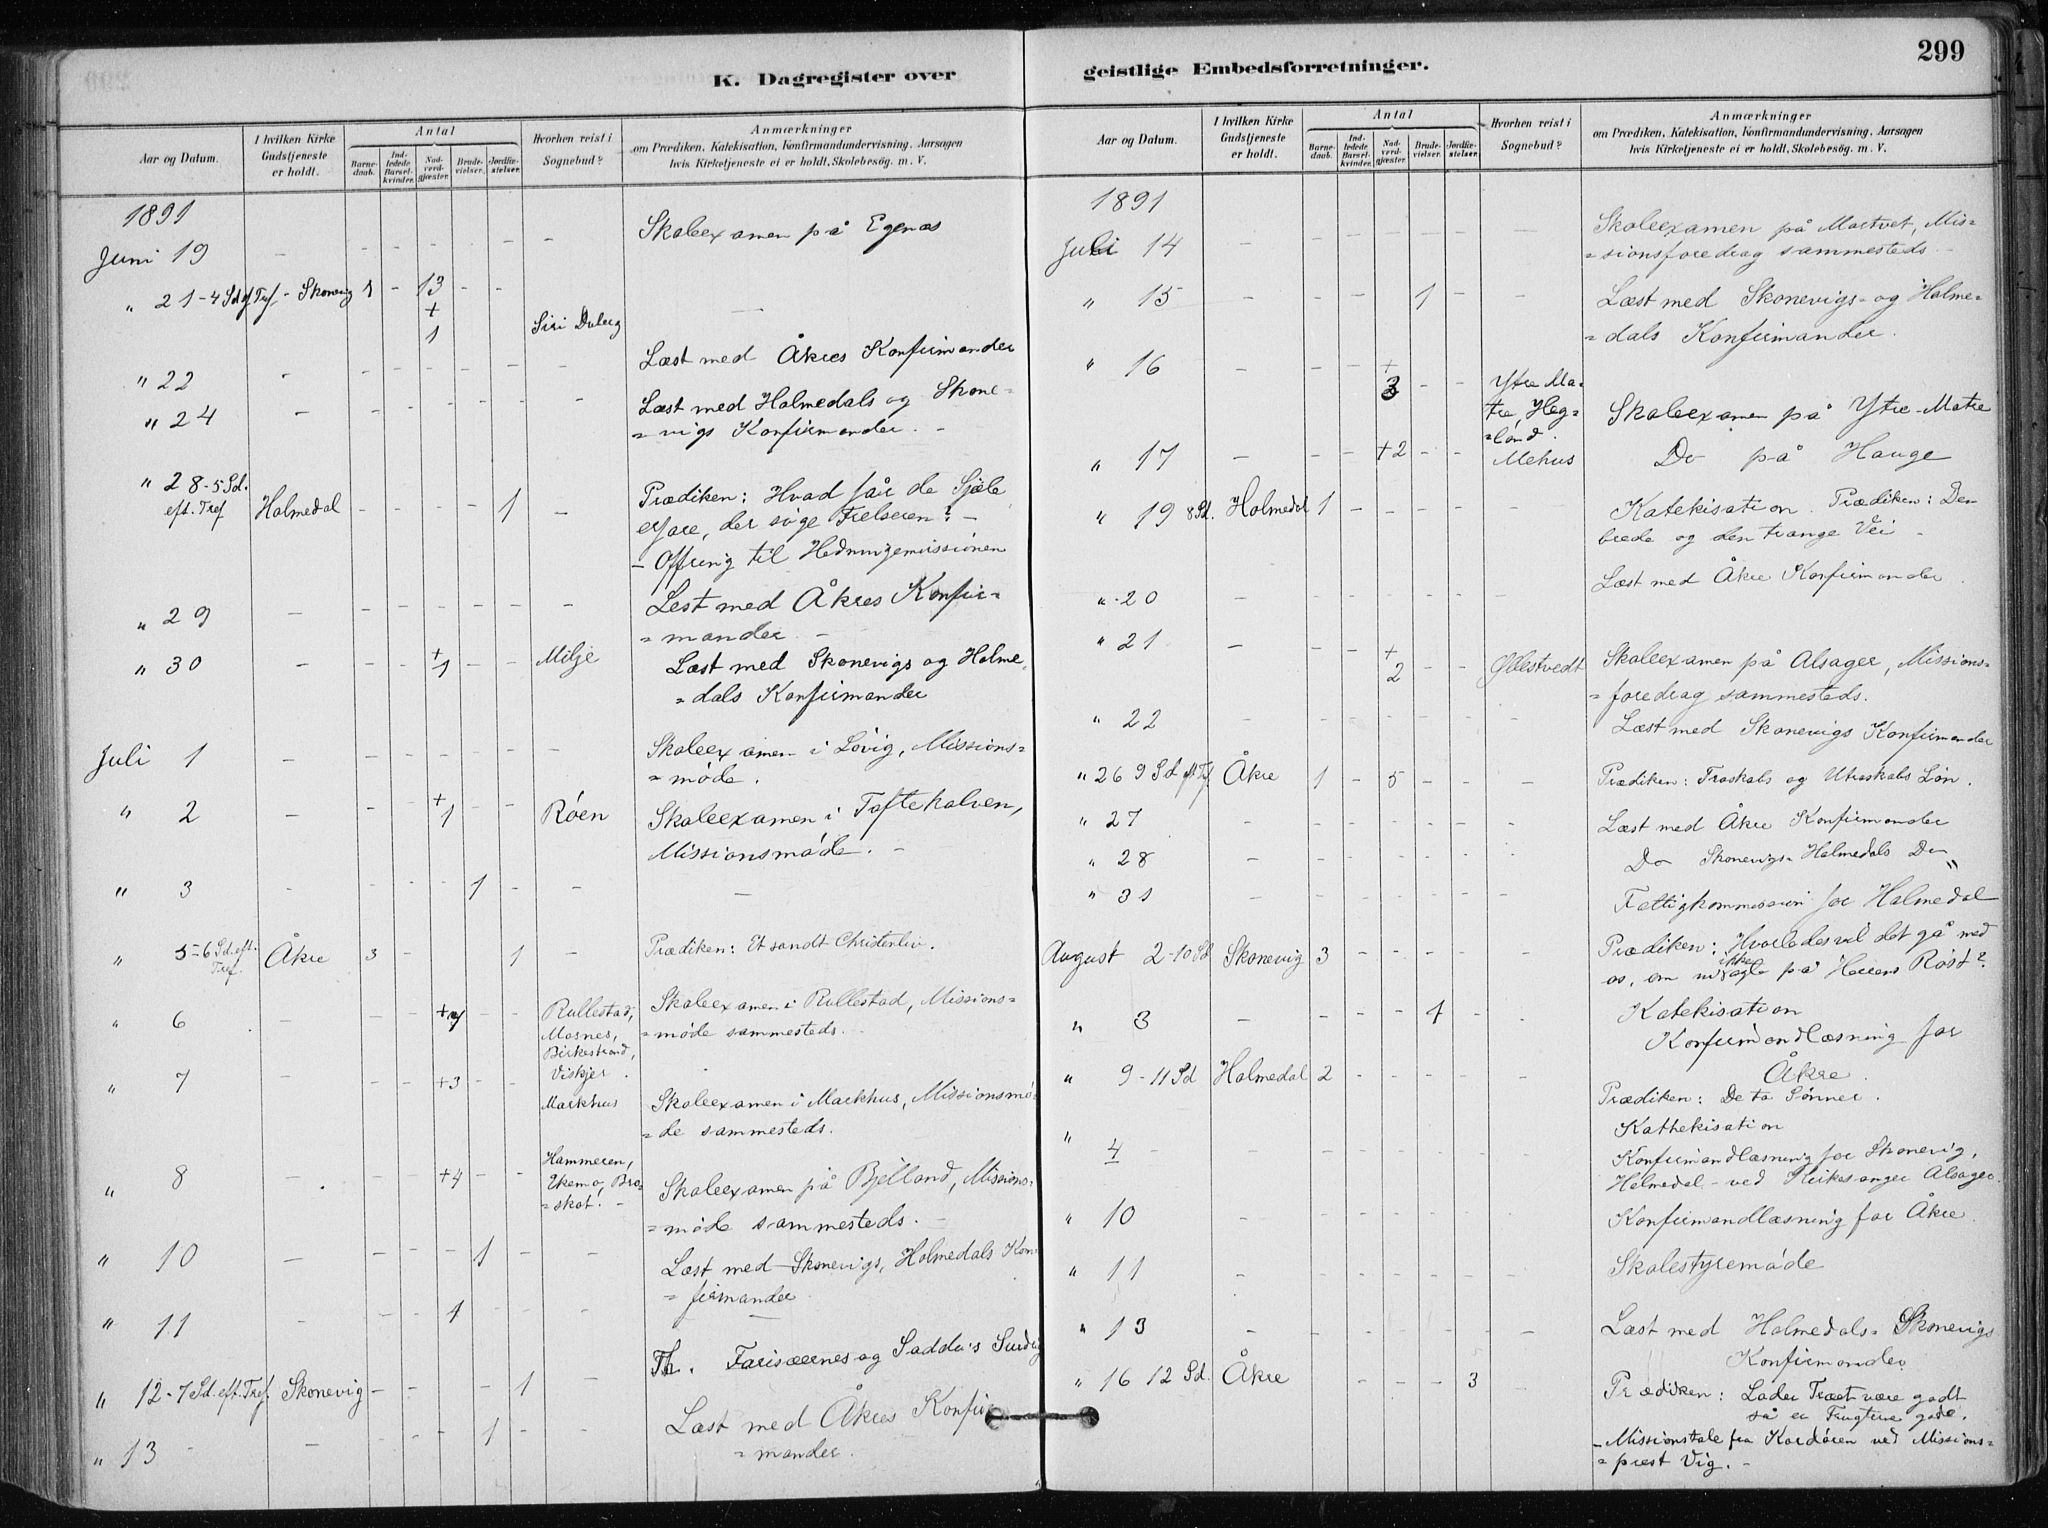 299
K. Dagregister over geistlige Embedsforretninger.
Aar og Datum.
I hvilken Kirke Gudstjeneste er holdt.
Antal
Barnedaab.
Indledede Barselkvinder.
Nadverdgjæster.
Brudevielser.
Jordfæstelser.
Hvorhen reist i Sognebud?
Anmærkninger
om Prædiken, Katekisation, Konfirmandundervisning, Aarsagen
hvis Kirketjeneste ei er holdt, Skolebesøg. m. V.
1891
Juni 19 - - - - - - - Skoleexamen på Egenæs
" 21-4 Sd ef Tref - Skonevig 1 - 13 - -
+ 1 Siri Duberg
" 22 - - - - - - - Læst med Åkres Konfirmander
" 24 - - - - - - - Læst med Holmedals og Skone-
=vigs Konfirmander. -
" 28-5 Sd. eft. Tref Holmedal - - - - 1 - Prædiken: Hvad får de Sjæle
erfare, der søge Frelseren? -
- Offring til Hedningemissionen
" 29 - - - - - - - Lest med Åkres Konfir=
=mander. -
" 30 - - - +1 - - Milje Læst med Skonevigs og Holme=
=dals Konfirmander
Juli 1 - - - - - - - Skoleexamen i Lövig, Missions=
=møde.
" 2 - - - +1 - - Röen Skoleexamen i Toftekalven,
Missionsmøde. -
" 3 - - - - 1 - - -
" 5-6 Sd. eft. Tref. Åkre 3 - 1 - Prædiken: Et sandt Christenliv.
" 6 - - - - - Rullestad, Skoleexamen i Rullestad, Missions=
Mosnes, =møde sammesteds. -
Birkestrand,
Viskjer.
" 7 - - - +3 - - Markhus Skoleexamen i Markhus, Missionsmø-
=de sammesteds.
" 8 - - - +4 - - Hammeren,
Ekemo, Bra=
=skat. - Skoleexamen på Bjelland, Missions=
=møde sammesteds. -
" 10 - - - - 1 - - Læst med Skonevigs, Holmedals Kon=
=firmander
" 11 - - - 1 - - - -
" 12-7 Sd. eft. Tref. Skonevig - - - - 1 - Th. Farisæernes og Saddu's Surdeig
" 13 - - - - 1 - - Læst med Åkres Konfir
=mander.
Aar og Datum.
I hvilken Kirke Gudstjeneste er holdt.
Antal
Barnedaab.
Indledede Barselkvinder.
Nadverdgjæster.
Brudevielser.
Jordfæstelser.
Hvorhen reist i Sognebud?
Anmærkninger
om Prædiken, Katekisation, Konfirmandundervisning, Aarsagen
hvis Kirketjeneste ei er holdt, Skolebesøg. m. V.
1891
Juli 14 - - - - - - - Skoleexamen på Mortvet, Mis=
=sionsforedrag sammesteds -
" 15 - - - - 1 - - Læst med Skonevigs- og Holme=
=dals Konfirmander.
" 16 - - - +3 - - Ytre Ma=
tre, Heg=
=land. Skoleexamen på Ytre-Matre
" 17 - - - +2 - - Mehus Do på Hauge
" 19 8 Sd. Holmedal 1 - - - - - Katekisation. Prædiken: Den
brede og den trange Vei -
" 20 - - - - - - - Læst med Åkre Konfirmander.
" 21 - - - +2 - - Ølestvedt Skoleexamen på Alsager, Missions=
=foredrag sammesteds.
" 22 - - - - - - - Læst med Skonevigs Konfirmander
" 26 9 Sd eft Tf. Åkre 1 - 5 - - - Prædiken: Troskabs og Utroskabs Løn.
" 27 - - - - - - - Læst med Åkre Konfirmander
" 28 - - - - - - - Do Skonevigs- Holmedals Do "
" 31 - - - - - - - Fattigkommission for Holmedal
August 2-10 Sd Skonevig 3 - - - - - Prædiken: Hvorledes vil det gå med
os, om vi ikke agte på Herrens Røst?
Katekisation
" 3 - - - - 1 - - Konfirmandlæsning for
Åkre.
" 9-11 Sd Holmedal 2 - - - - - Prædiken: De to Sønner.
Kathekisation
" 4 Konfirmandlæsning for Skonevig,
Holmedal - ved Kirkesanger Alsager.
" 10 - - - - - - - Konfirmandlæsning for Åkre.
" 11 - - - - - - - Skolestyremøde
" 13 - - - - - - - Læst med Holmedals- Skonevigs
Konfirmander.
" 16 12 Sd. Åkre - - - - 3 - Prædiken: Lader Træet være godt
så er Frugterne gode.
- Missionstale fra Kordören ved Missions=
=prest Vig. -